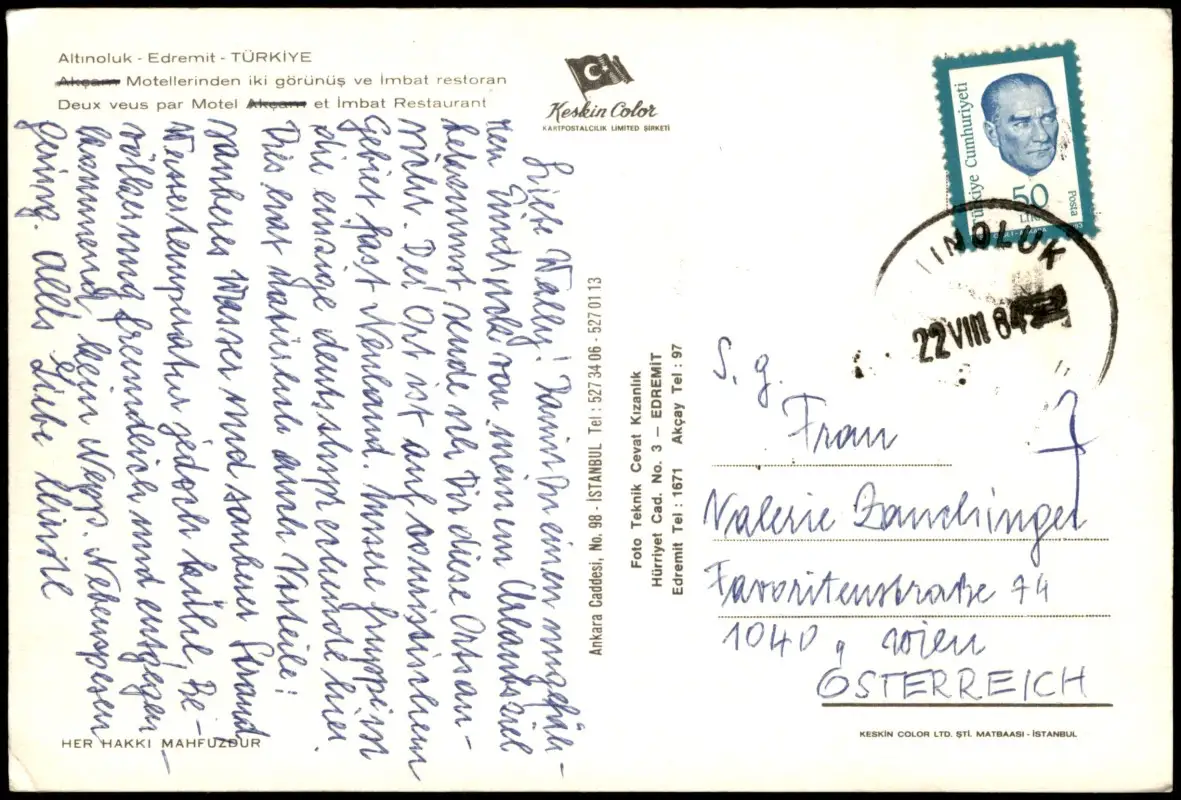 Altınoluk - Edremit - TÜRKİYE
Akçam Motellerinden iki görünüş ve İmbat restoran
Deux veus par Motel Akçam et İmbat Restaurant
Keskin Color
KARTPOSTALCILIK LIMITED ŞIRKETI
Liebe Vally! Damit Du einen ungefäh-
ren Eindruck von meinem Urlaubsziel
bekommst sende ich Dir diese Ortsan-
sicht. Der Ort ist auf osmanischem
Gebiet fast Neuland. Unsere Gruppe ist
die einzige deutschsprechende hier.
Dies hat natürlich auch Vorteile:
sauberes Wasser und sauberer Strand
Wassertemperatur jedoch kühl, Be-
völkerung freundlich und entgegen-
kommend, kein Nepp. Nebenspesen
gering. Alles Liebe
Ankara Caddesi, No. 98 - İSTANBUL Tel : 527 34 06 - 527 01 13
Foto Teknik Cevat Kızanlık
Hürriyet Cad. No. 3 — EDREMİT
Edremit Tel : 1671 Akçay Tel : 97
Türkiye Cumhuriyeti
50
LİRA
Posta
INOLUK
22 VIII 84
S. g.
Frau
Valerie Zauchinger
Favoritenstraße 74
1040, Wien
ÖSTERREICH
HER HAKKI MAHFUZDUR
KESKIN COLOR LTD. ŞTİ. MATBAASI - İSTANBUL